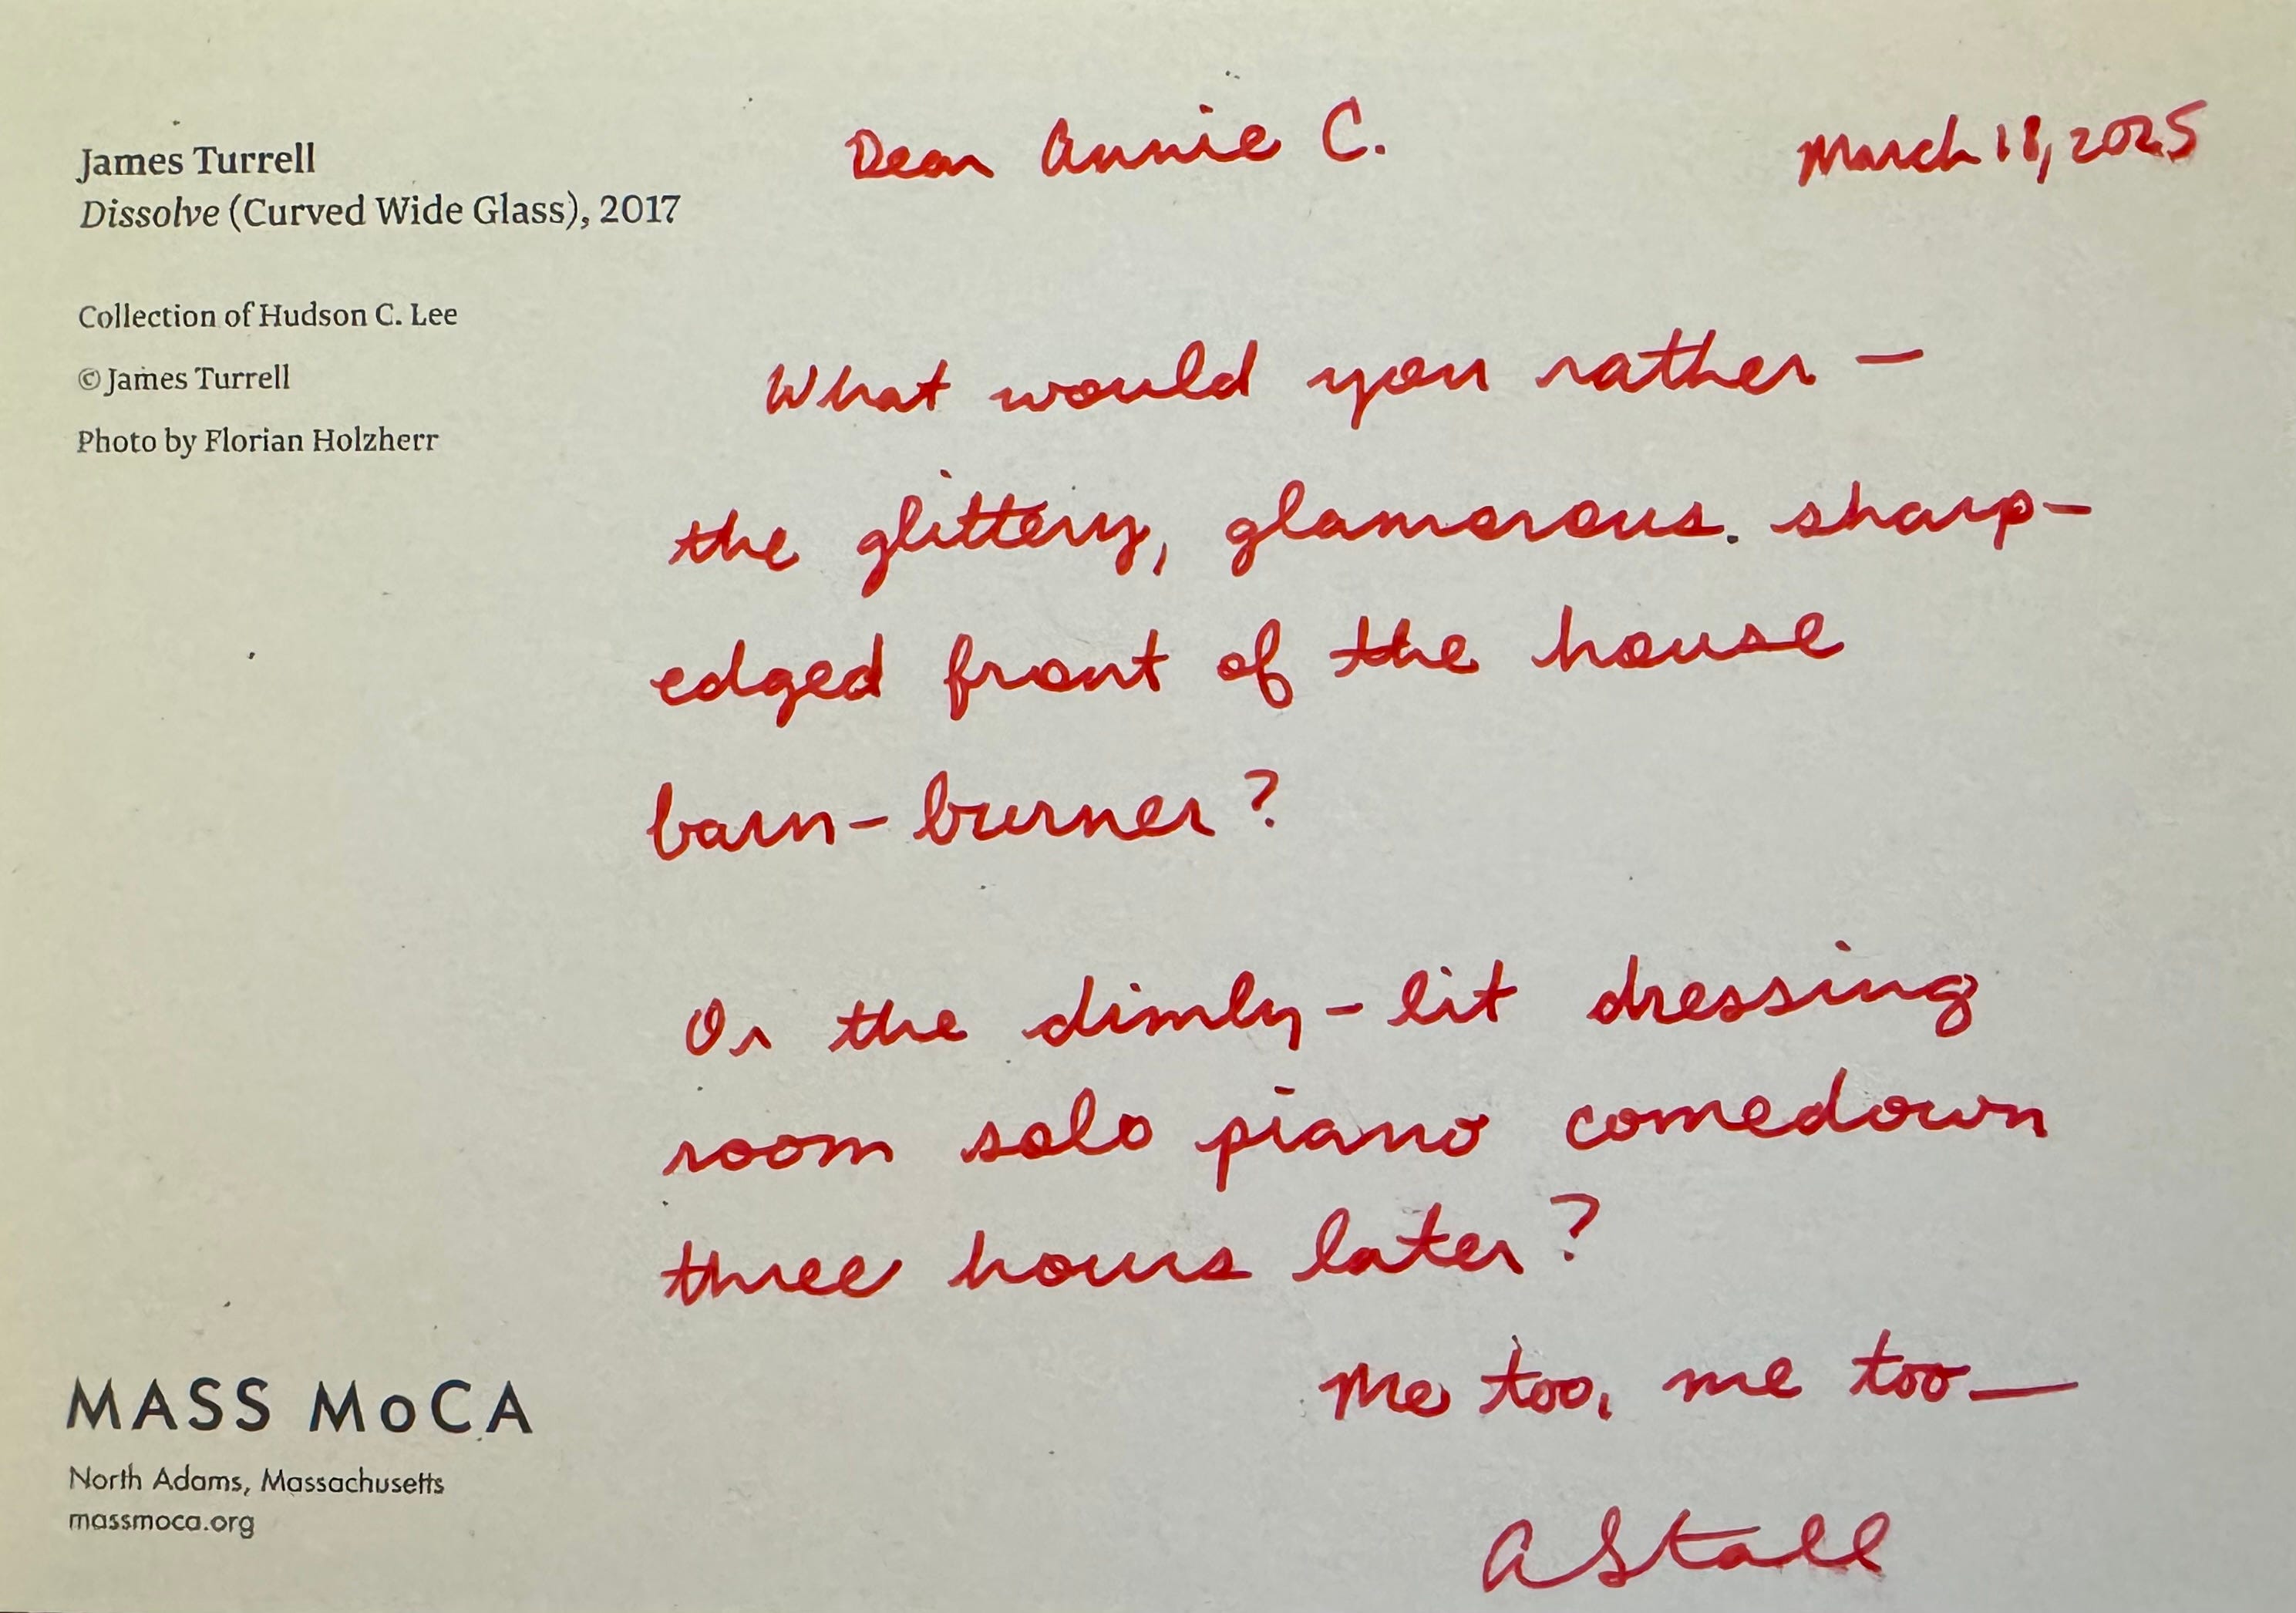 James Turrell
Dissolve (Curved Wide Glass), 2017
Collection of Hudson C. Lee
© James Turrell
Photo by Florian Holzherr
Dear Annie C.
March 18, 2025
What would you rather —
the glittery, glamorous. sharp-
edged front of the house
barn-burner?
Or the dimly-lit dressing
room solo piano comedown
three hours later?
Me too, me too—
AStall
MASS MoCA
North Adams, Massachusetts
massmoca.org